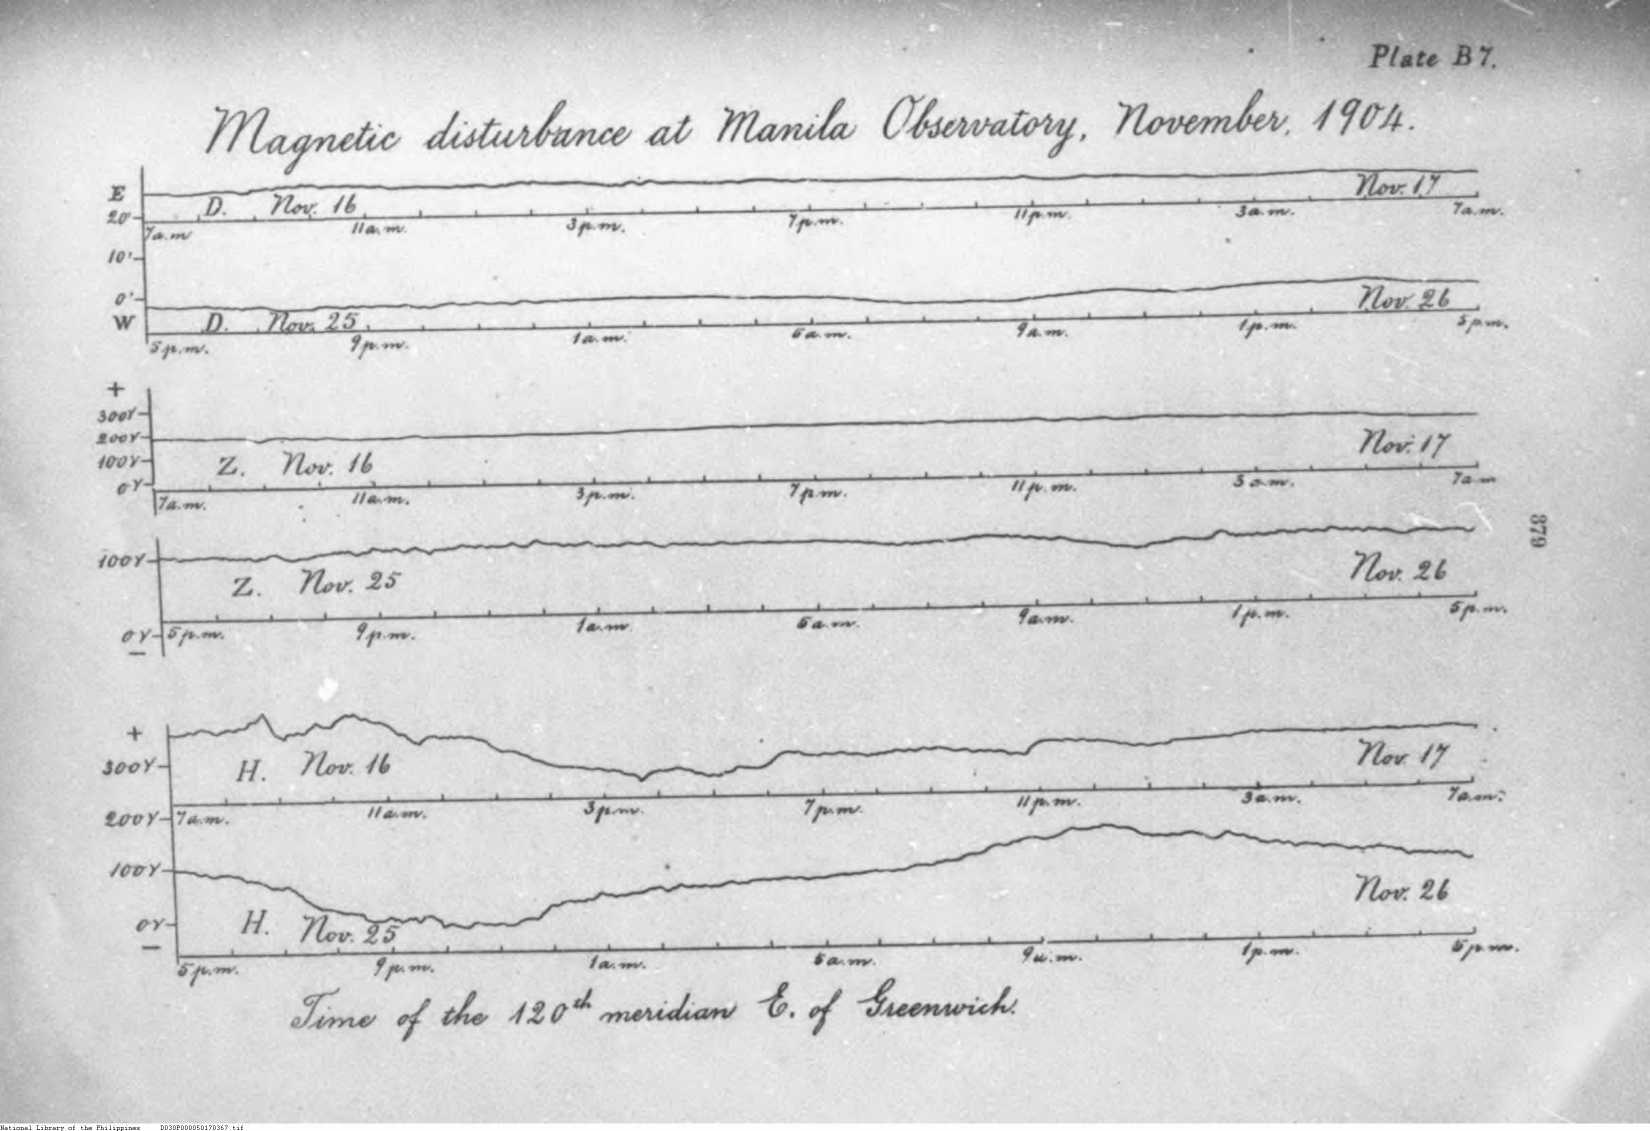 Plate B7.
Magnetic disturbance at Manila Observatory, November, 1904.
E
D. Nov. 16 Nov. 17
20'
7a.m 11a.m. 3p.m. 7p.m. 11p.m. 3a.m. 7a.m.
10'
0'
W D. Nov. 25 Nov. 26
5p.m. 9p.m. 1a.m. 5a.m. 9a.m. 1p.m. 5p.m.
+
300γ
200γ
100γ Z. Nov. 16 Nov. 17
0γ
7a.m. 11a.m. 3p.m. 7p.m. 11p.m. 3a.m. 7a.m
879
100γ
Z. Nov. 25 Nov. 26
0γ 5p.m. 9p.m. 1a.m. 5a.m. 9a.m. 1p.m. 5p.m.
−
+
300γ H. Nov. 16 Nov. 17
200γ 7a.m. 11a.m. 3p.m. 7p.m. 11p.m. 3a.m. 7a.m.
100γ
0γ H. Nov. 25 Nov. 26
−
5p.m. 9p.m. 1a.m. 5a.m. 9a.m. 1p.m. 5p.m.
Time of the 120th meridian E. of Greenwich.
National Library of the Philippines D030P000050170367.tif